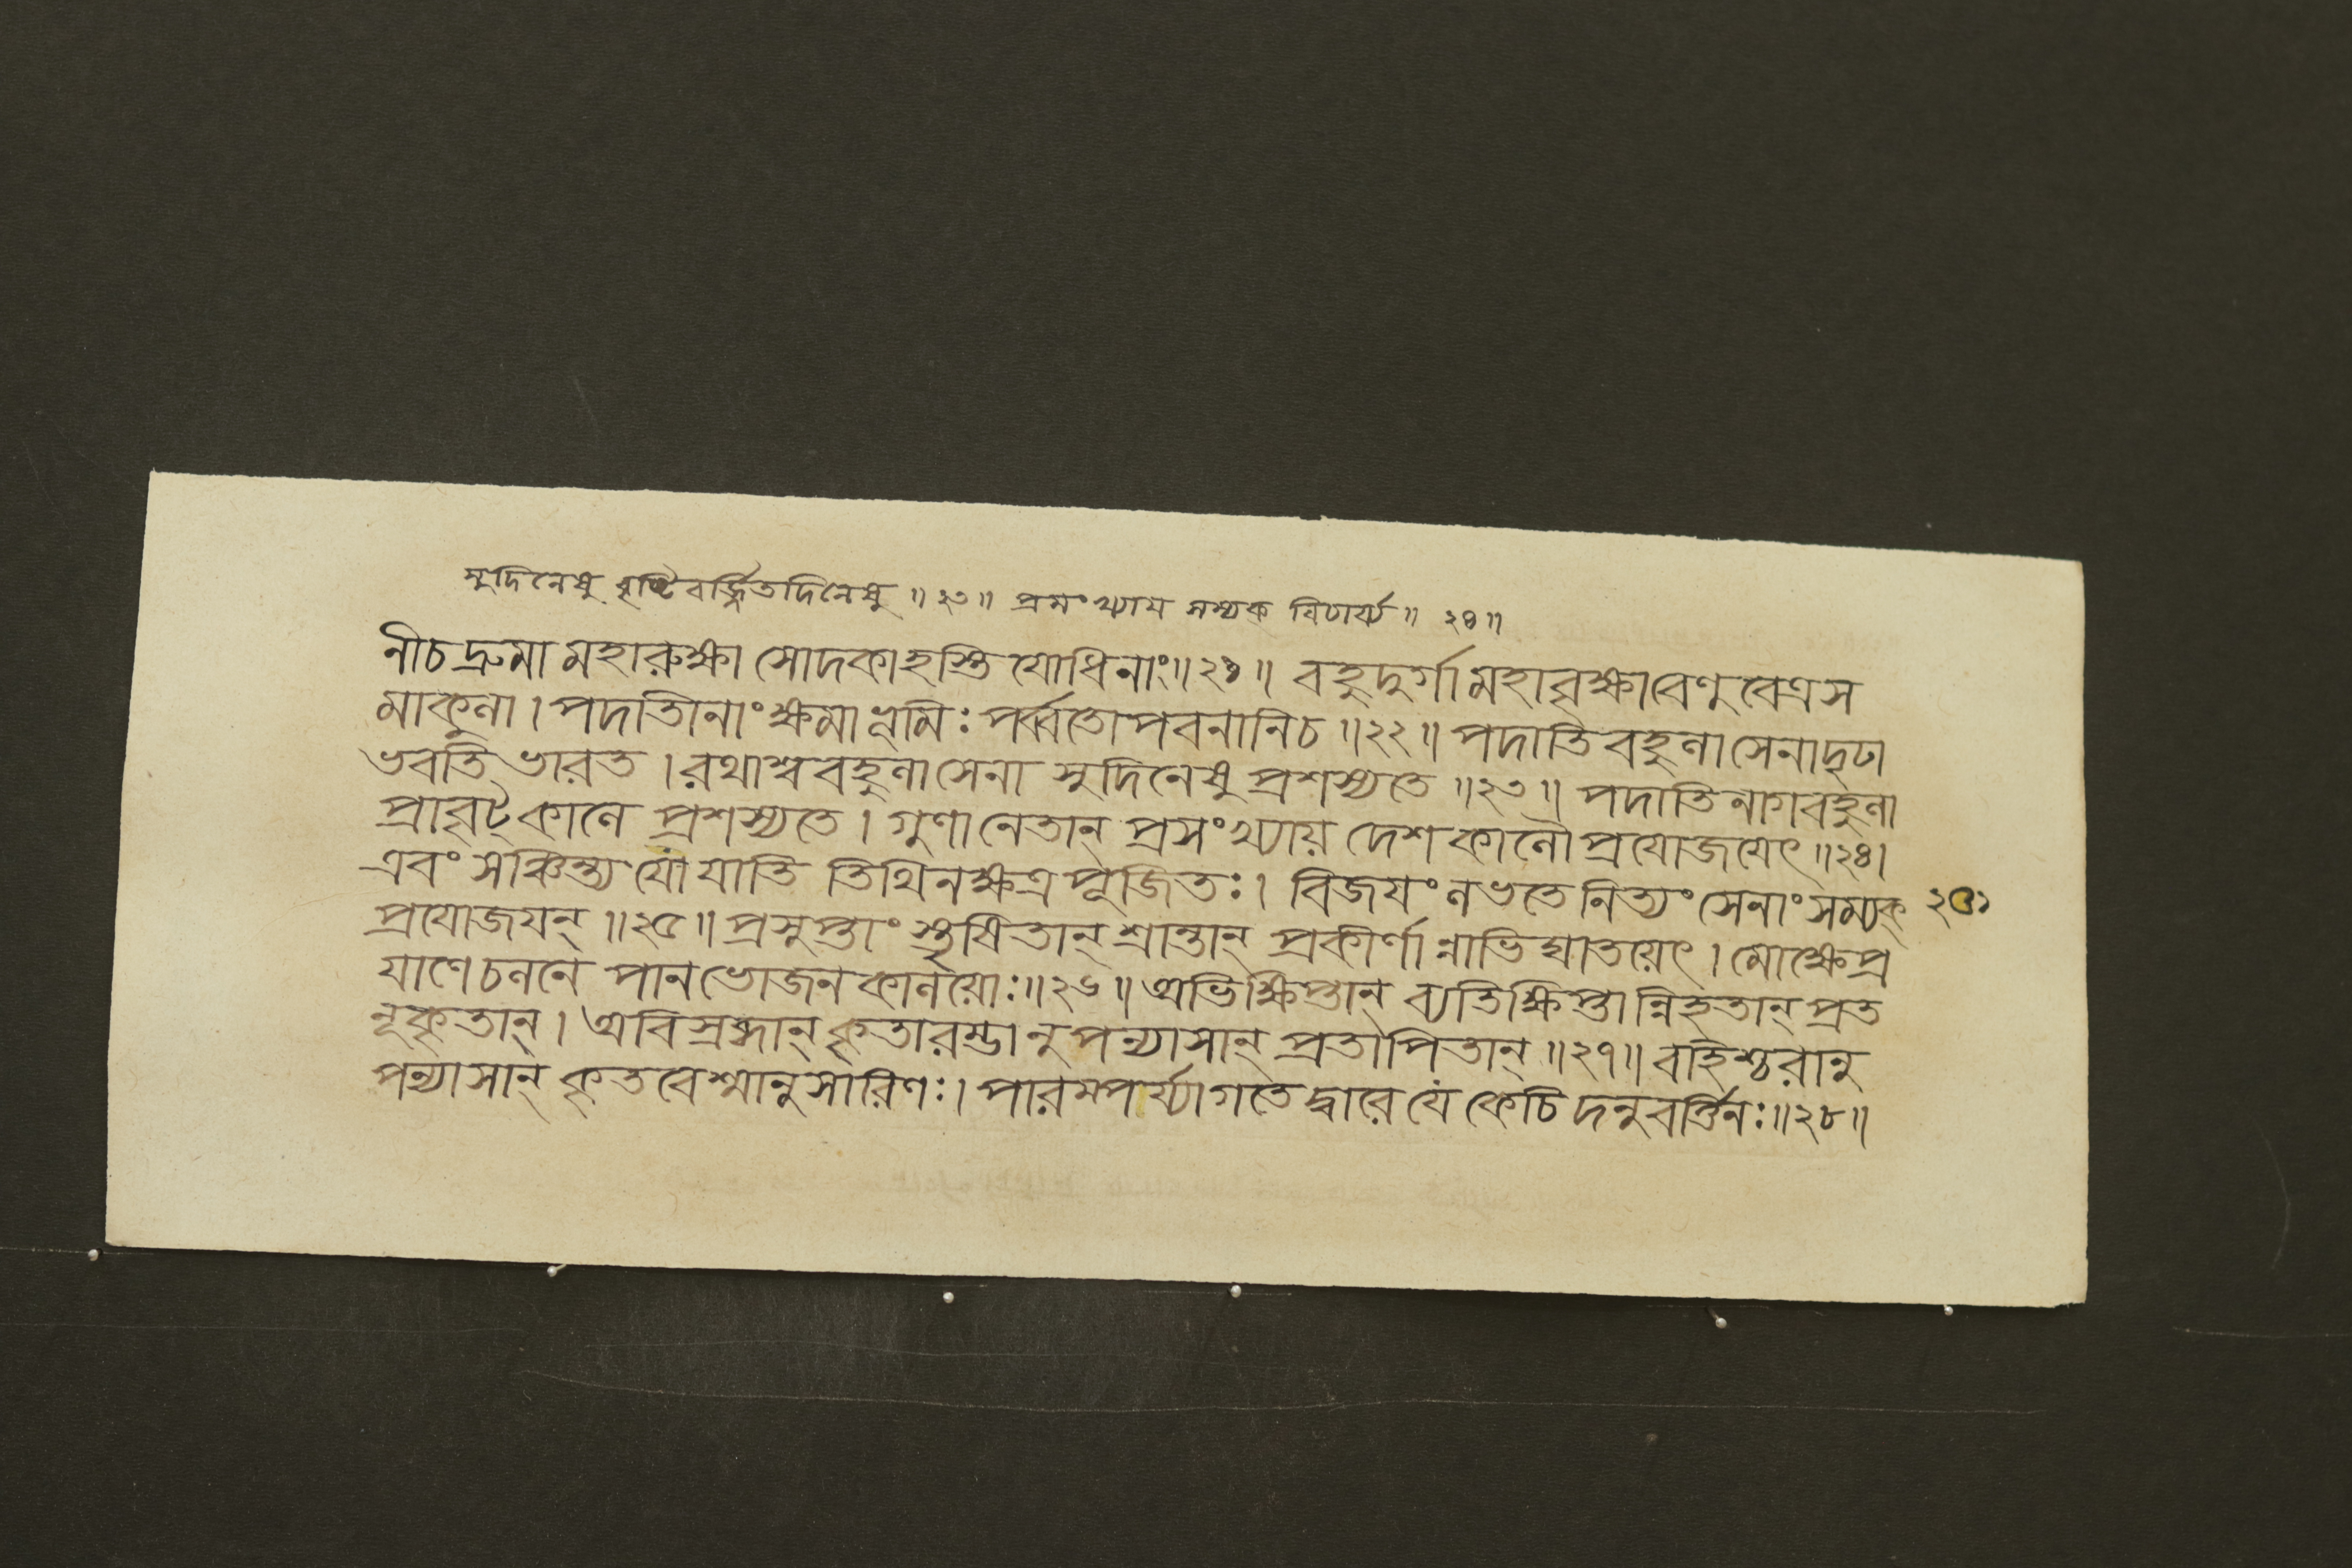 সুদিনেষু বৃষ্টিবর্জ্জিতদিনেষু ॥ ২৩ ॥ প্রসংখ্যায় সম্যক্ বিচার্য্য ॥ ২৪ ॥
নীচদ্রুমা মহারুক্ষা সোদকাহস্তি যোধিনাং॥২১॥ বহুদুর্গামহাবৃক্ষাবেণুবেত্রস
মাকুলা। পদাতিনাং ক্ষমাভূমিঃ পর্ব্বতোপবনানিচ ॥২২॥ পদাতিবহুলাসেনাদৃঢা
ভবতি ভারত। রথাশ্ববহুলাসেনা সুদিনেষুপ্রশস্যতে ॥২৩॥ পদাতিনাগবহুলা
প্রাবৃট্কালে প্রশস্যতে। গুণানেতান্ প্রসংখ্যায় দেশকালৌপ্রযোজয়েৎ ॥২৪।
এবং সঞ্চিন্ত্য যো যাতি তিথিনক্ষত্রপূজিতঃ। বিজয়ং লভতে নিত্যং সেনাং সম্যক্ ২০১
প্রযোজয়ন্ ॥২৫॥ প্রসুপ্তাংস্তৃষিতান্ শ্রান্তান্ প্রকীর্ণান্নাভিঘাতয়েৎ। মোক্ষেপ্র
যাণেচলনে পানভোজনকালয়োঃ॥২৬॥ অভিক্ষিপ্তান্ ব্যতিক্ষিপ্তান্নিহতান্ প্রত
নূকৃতান্। অবিস্রব্ধান্ কৃতারম্ভানুপন্যাসান্ প্রতাপিতান্ ॥২৭॥ বহিশ্চরানু
পন্যাসান্ কৃতবেশ্মানুসারিণঃ। পারম্পর্য্যাগতে দ্বারে যে কেচিদনুবর্ত্তিনঃ॥২৮॥